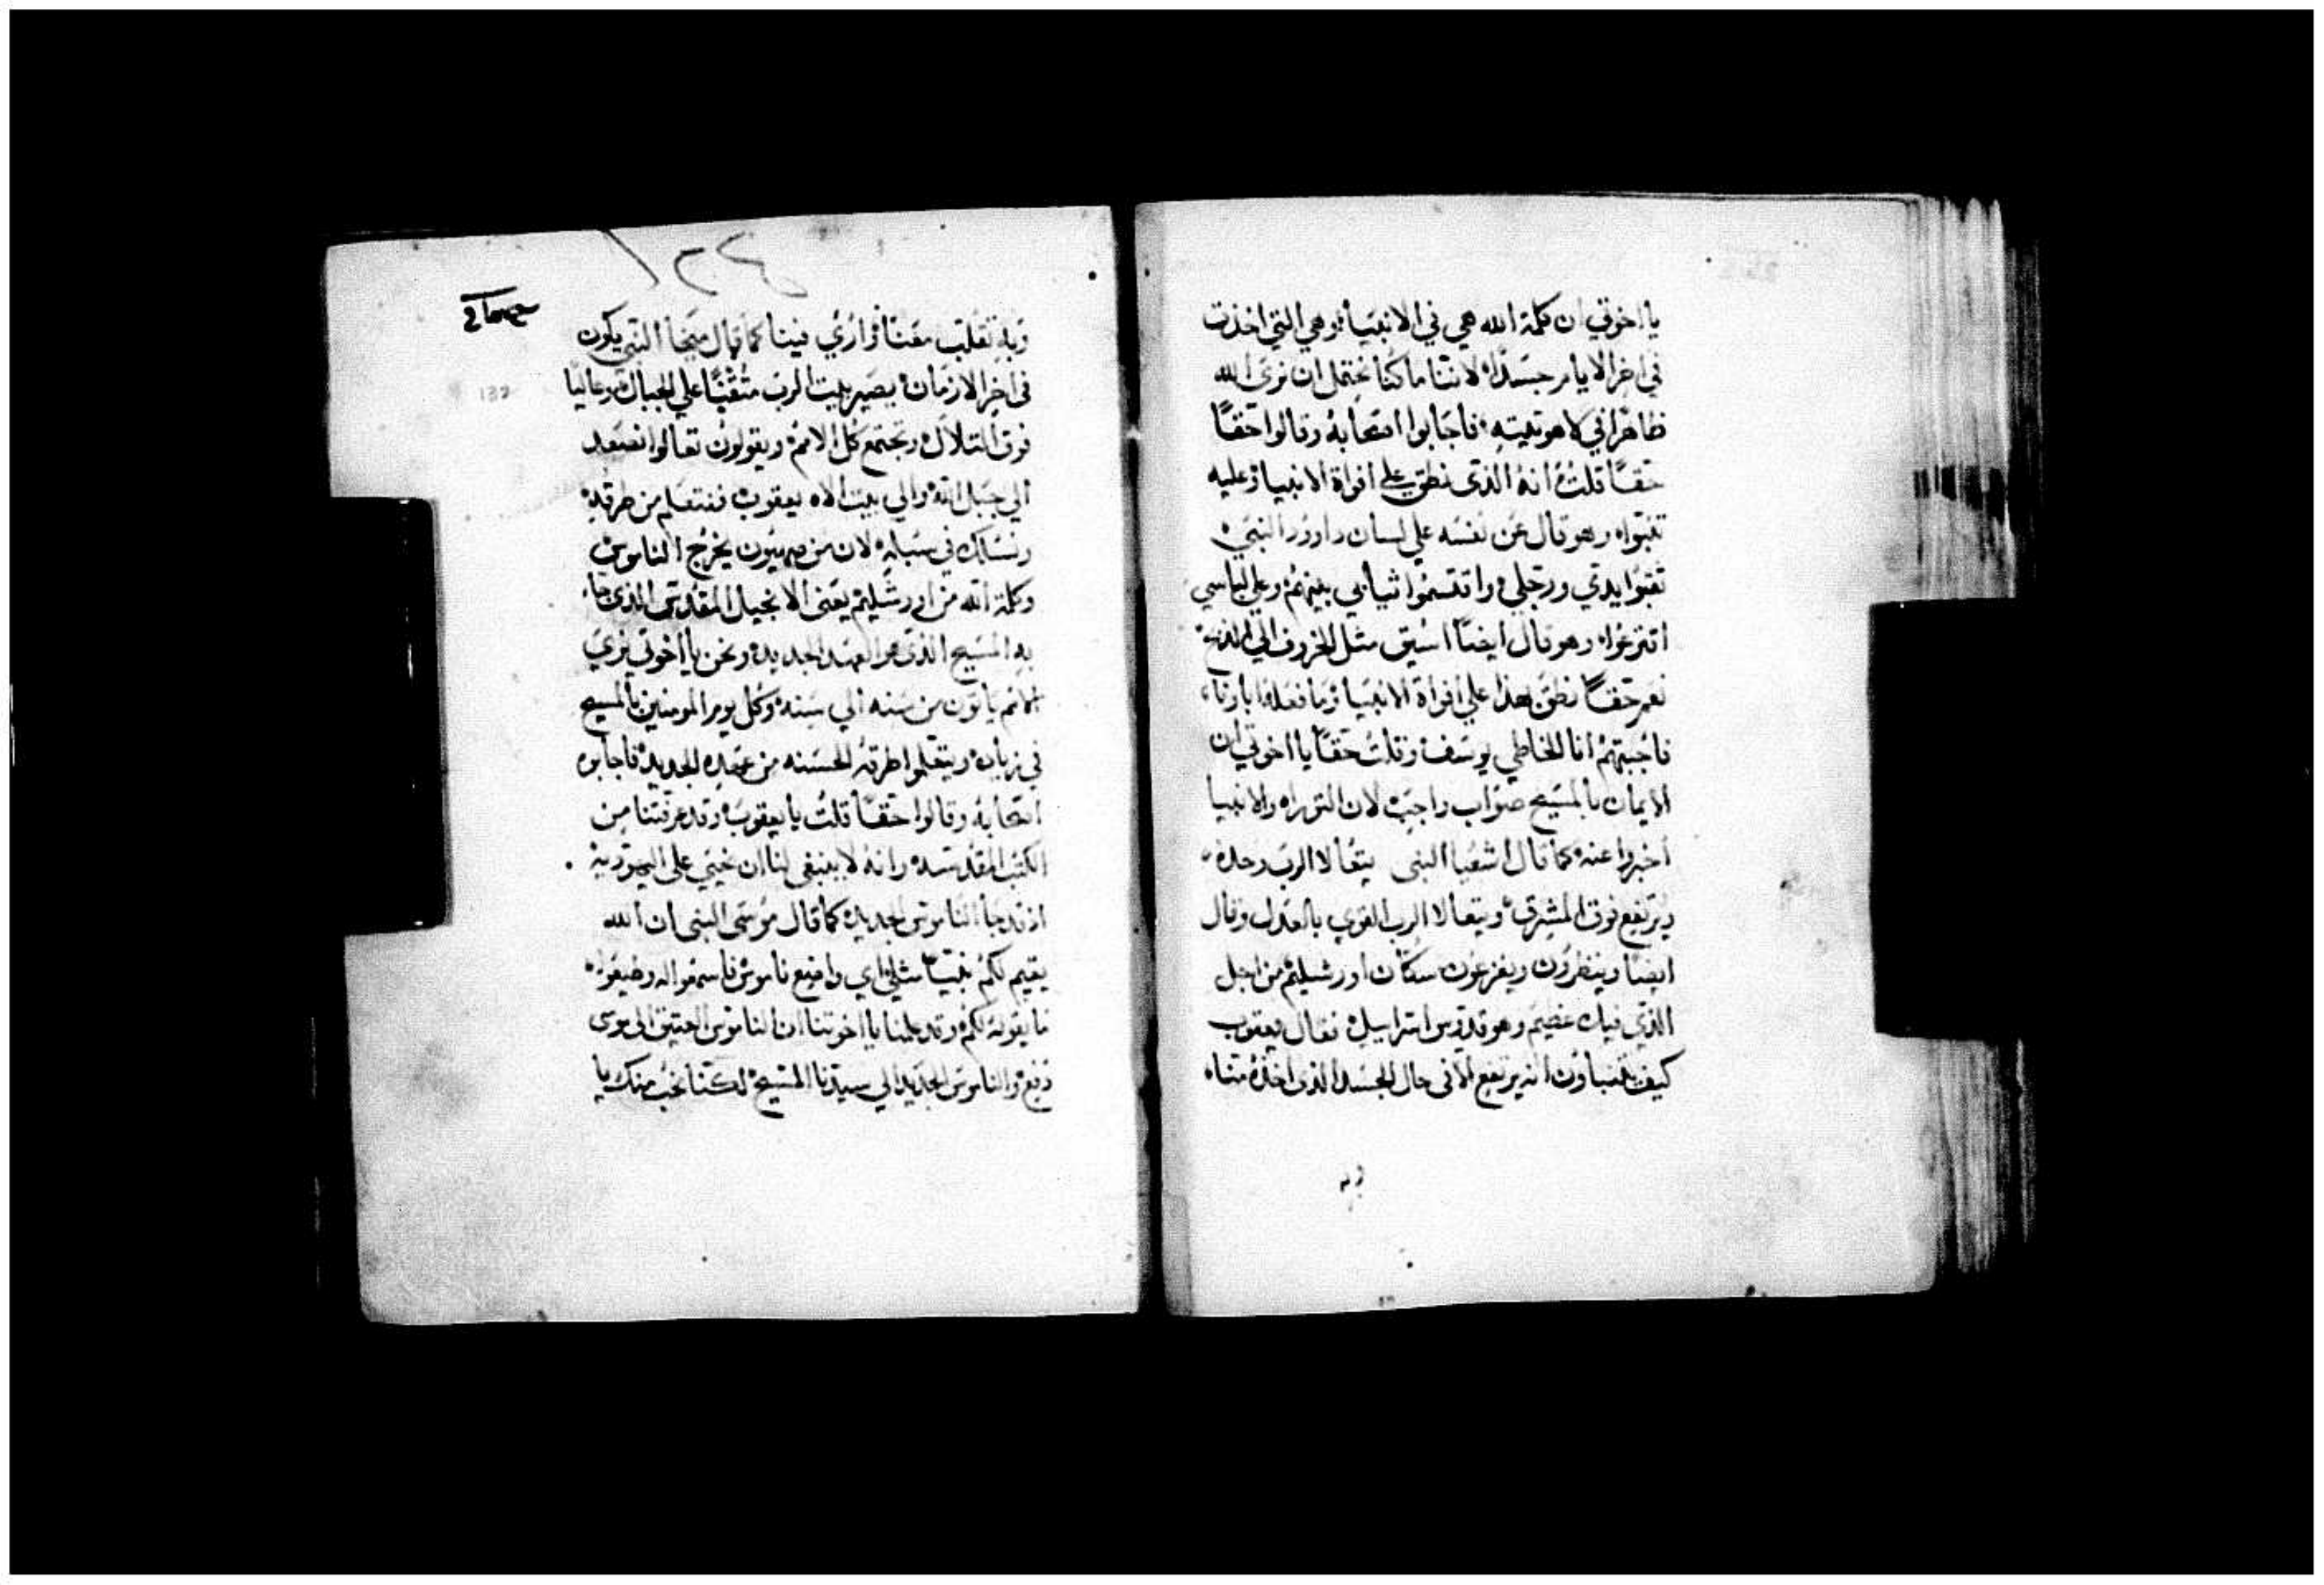 يا اخوتي ان كلمة الله هي في الانبيا وهي التي اخذت
في اخر الايام جسدًا لاننا ما كنا نحتمل ان نرى الله
ظاهرًا في لاهوتيته فاجابوا اصحابه وقالوا حقًا
حقًا قلت انه الذى نطق على افواة الانبيا وعليه
تنبواه وهو قال عن نفسه علي لسان داوود النبي
ثقبوا يدي ورجلي واقتسموا ثيابي بينهم وعلي لباسي
اقترعواه وهو قال ايضًا اسيق مثل الخروف الي الذبح
نعم حقًا نطق بهذا علي افواة الانبيا وما فعلوا اباونا
فاجبتهم انا الخاطي يوسف وقلت حقًا يا اخوتي ان
الايمان بالمسيح صواب واجب لان التوراه والانبيا
اخبروا عنه كما قال اشعيا النبى يتعالا الرب وحده
ويرتفع فوق المشرق ويتعالا الرب القوي بالعدل وقال
ايضًا وينظرون ويفزعون سكان اورشليم من اجل
الذي فيك عضيم وهو قدوس اسراييل فقال يعقوب
كيف تنباون انه يرتفع الا في حال الجسد الذى اخذه مناه
وبه
١٣٢
وبه تقلب معنا واري فينا كما قال ميخا النبي يكون
فى اخر الازمان يصير بيت الرب متقنًا علي الجبال وعاليًا
فوق التلال وتجتمع كل الامم ويقولون تعالوا نصعد
الي جبل الله والي بيت الاه يعقوب فنتعلم من طرقه
ونسلك في سبله لان من صهيون يخرج الناموس
وكلمة الله من اورشليم يعنى الانجيل المقدس الذى جا
به المسيح الذى هو العهد الجديد ونحن يا اخوتي نري
الامم ياتون من سنه الي سنه وكل يوم المومنين بالمسيح
في زياده ويتعلموا طرقه الحسنه من عهده الجديد فاجابوه
اصحابه وقالوا حقًا قلت يا يعقوب وقد عرفتنا من
الكتب المقدسه وانه لا ينبغى لنا ان نحيى على اليهودية
اذ قد جا الناموس الجديد كما قال موسى النبى ان الله
يقيم لكم نبيًا مثلي اي واضع ناموس فاسمعوا له وضيعوه
ما يقوله لكم وقد علمنا يا اخوتنا ان الناموس العتيق الى موسى
دفع والناموس الجديد الي سيدنا المسيح لكننا نحب منك يا